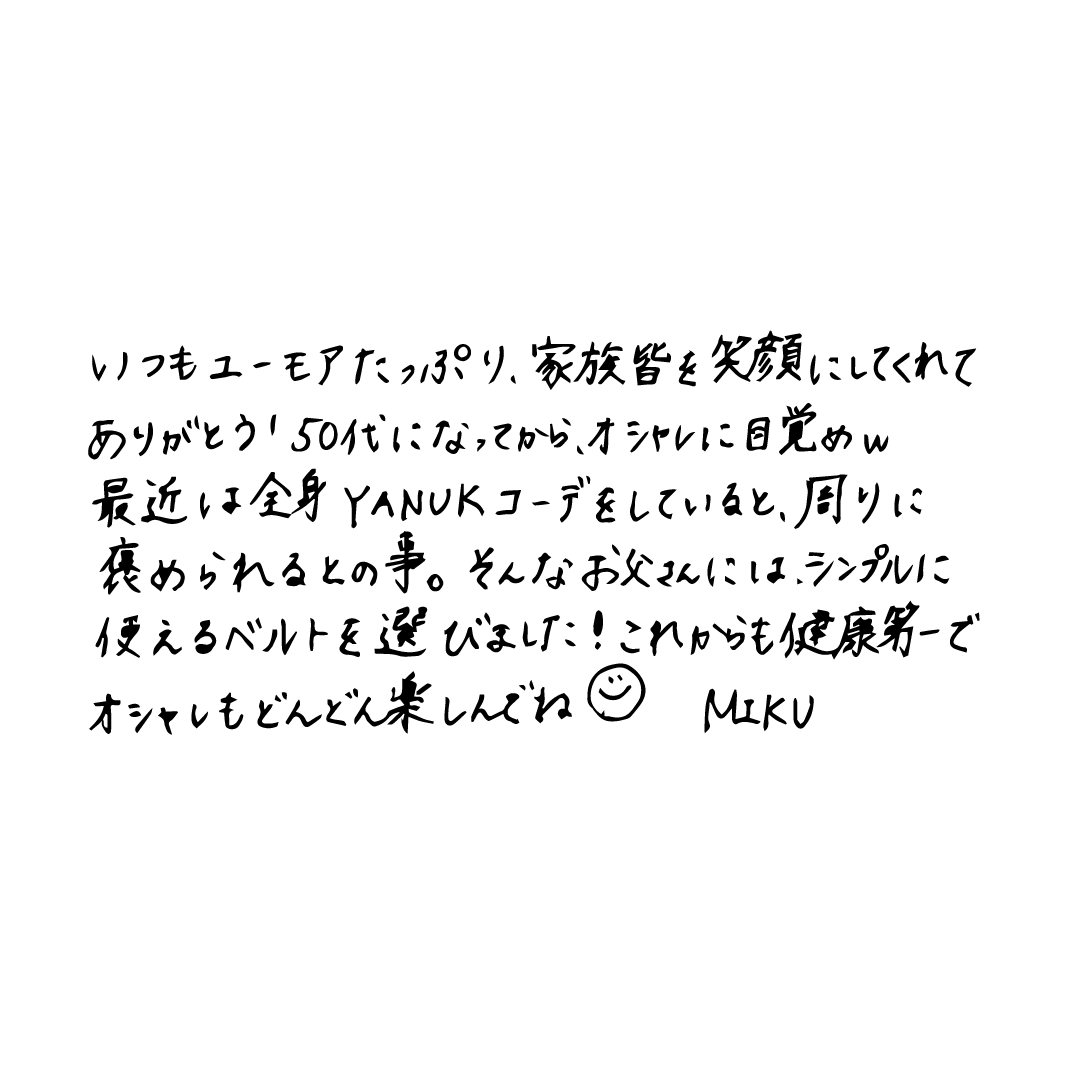 いつもユーモアたっぷり、家族皆を笑顔にしてくれて
ありがとう！50代になってから、オシャレに目覚めw
最近は全身YANUKコーデをしていると、周りに
褒められるとの事。そんなお父さんには、シンプルに
使えるベルトを選びました！これからも健康第一で
オシャレもどんどん楽しんでね☺ MIKU